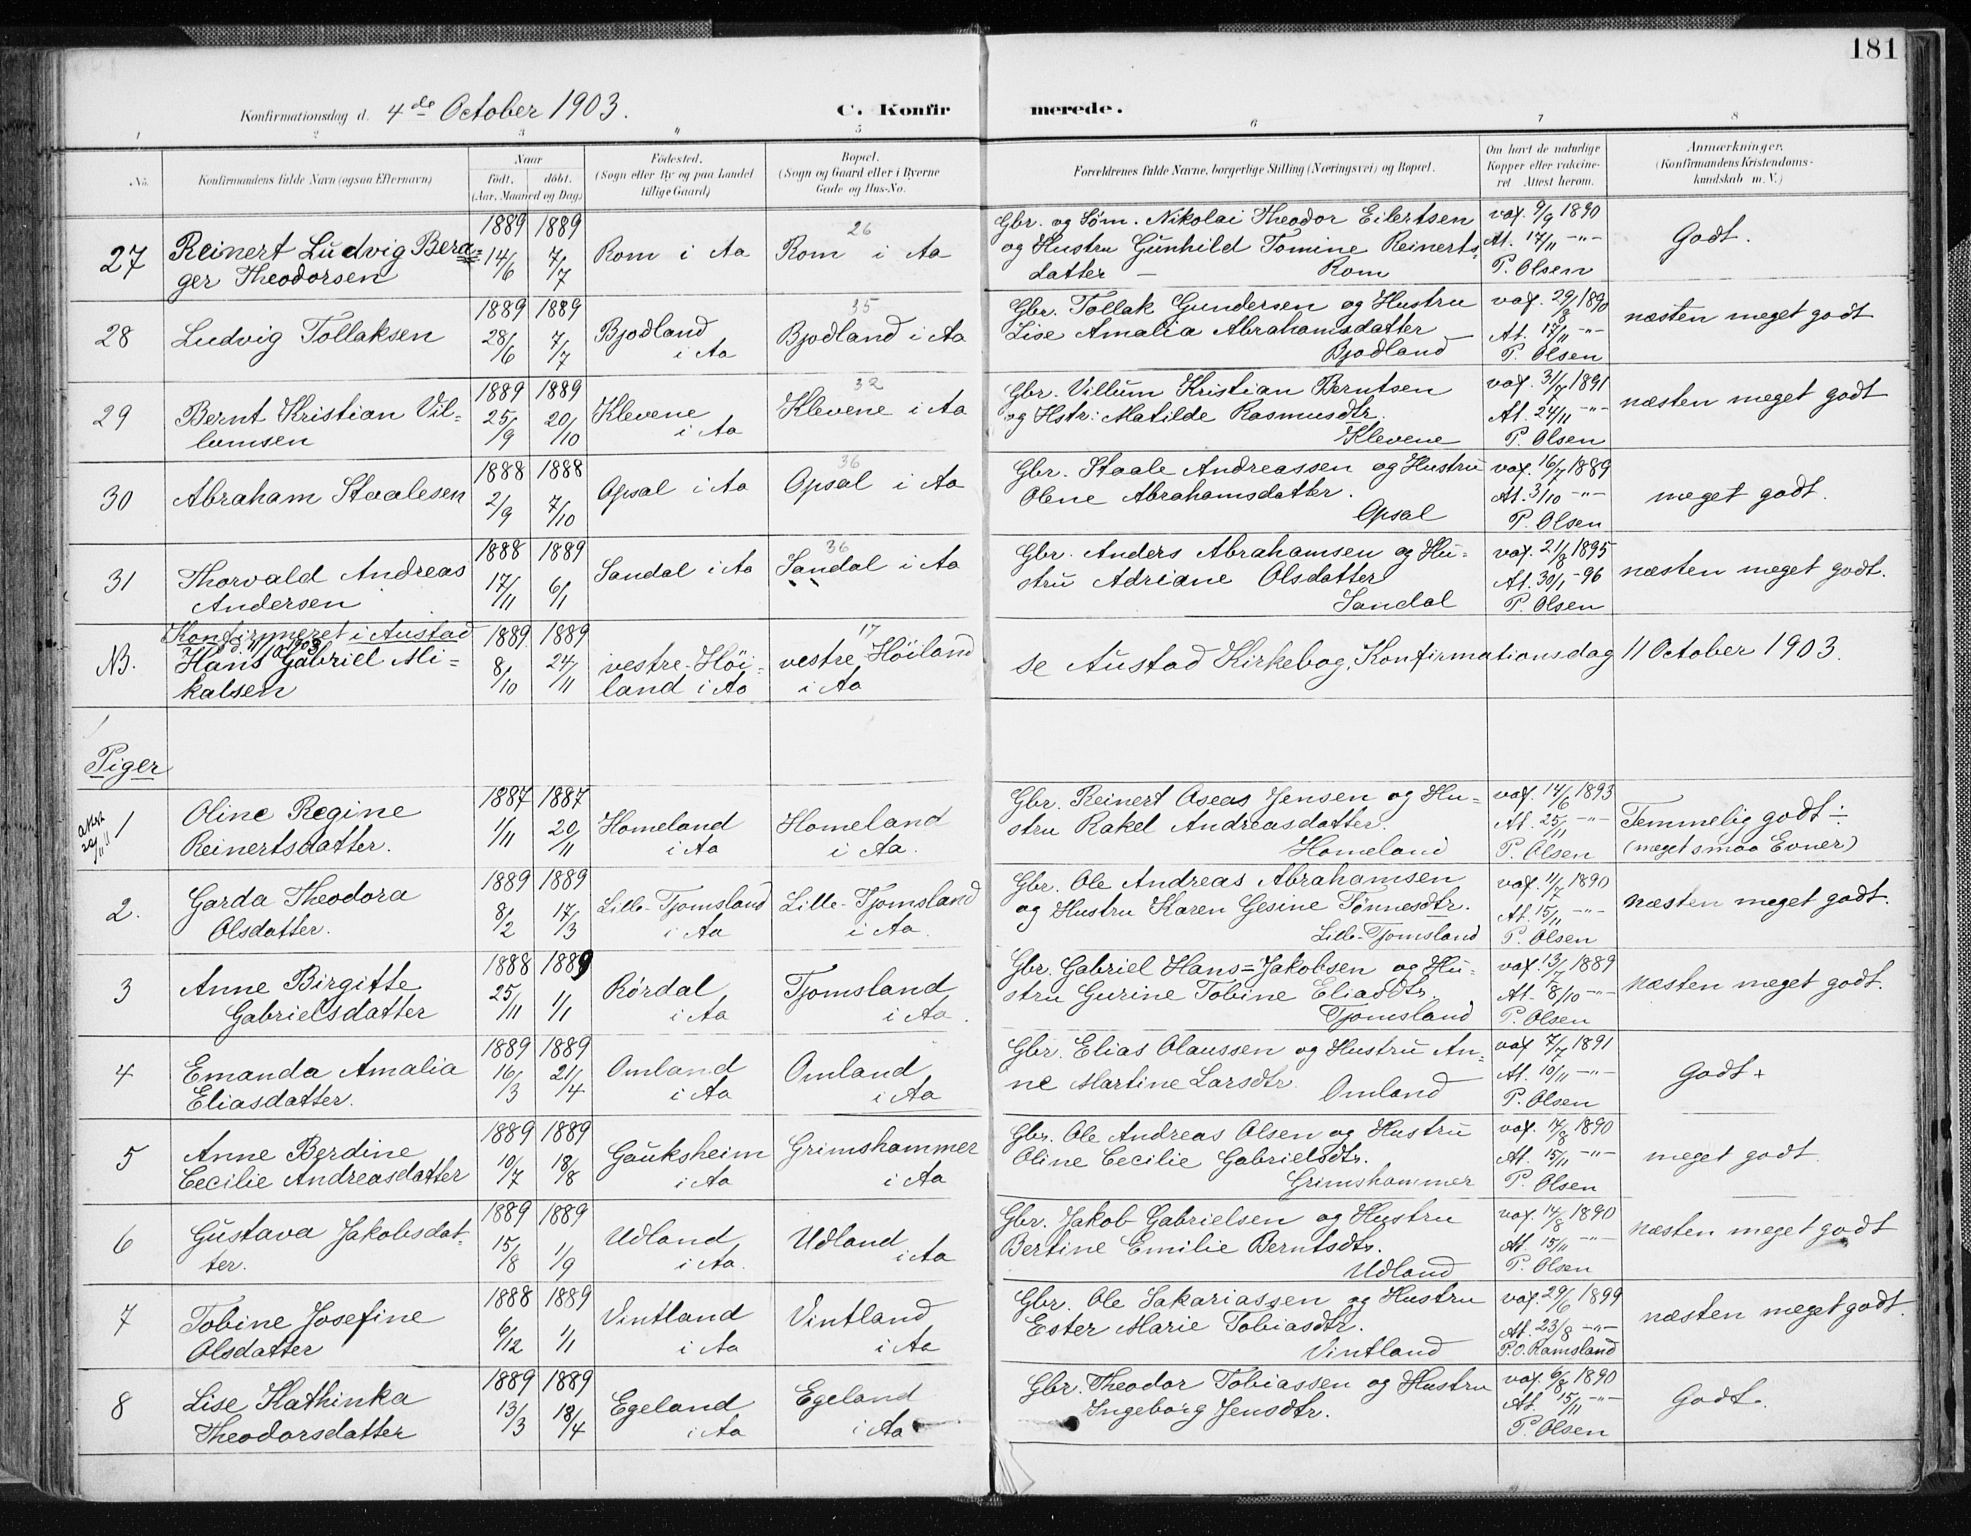 181
Konfirmationsdag d. 4de October 1903.
C. Konfirmerede.
1 2 3 4 5 6 7 8
No.
Konfirmandens fulde Navn (ogsaa Efternavn)
Naar
födt, döbt.
(Aar, Maaned og Dag)
Födested.
(Sogn eller By og paa Landet
tillige Gaard)
Bopæl.
(Sogn og Gaard eller i Byerne
Gade og Hus-No.
Forældrenes fulde Navne, borgerlige Stilling (Næringsvei) og Bopæl.
Om havt de naturlige
Kopper eller vakcine-
ret Attest herom.
Anmærkninger.
(Konfirmandens Kristendoms-
kundskab m. V.)
27 Reinert Ludvig Bera=
ger Theodorsen
1889 14/6 1889 7/7
Rom i Aa
26
Rom i Aa
Gbr. og Søm. Nikolai Theodor Eilertsen
og Hustru Gunhild Tomine Reinerts-
datter — Rom
vax. 9/9 1890
At. 17/11 -"-
P. Olsen
Godt.
28 Ludvig Tollaksen
1889 28/6 1889 7/7
Bjodland
i Aa
35
Bjodland i Aa
Gbr. Tollak Gundersen og Hustru
Lise Amalia Abrahamsdatter —
Bjodland
vax. 29/8 1890
At. 17/11 -"-
P. Olsen
næsten meget godt
29 Bernt Kristian Vil-
lumsen
1889 25/9 1889 20/10
Klevene
i Aa
32
Klevene i Aa
Gbr. Villum Kristian Berntsen
og Hstr: Matilde Rasmusdtr.
Klevene
vax. 31/7 1891
At. 24/11 -"-
P. Olsen
næsten meget godt
30 Abraham Staalesen
1888 2/9 1888 7/10
Opsal i Aa
36
Opsal i Aa
Gbr. Staale Andreassen og Hustru
Olene Abrahamsdatter.
Opsal
vax. 16/7 1889
At. 3/10 -"-
P. Olsen
meget godt.
31 Thorvald Andreas
Andersen
1888 17/11 1889 6/1
Sandal i Aa
36
Sandal i Aa
Gbr. Anders Abrahamsen og Hu-
stru Adriane Olsdatter
Sandal
vax. 21/8 1895
At. 30/1 -96
P. Olsen
næsten meget godt.
Konfirmeret i Austad
d. 11/10 1903
NB. Hans Gabriel Mi-
kalsen
1889 8/10 1889 24/11
vestre-Höi-
land i Aa
17
vestre Höiland
i Aa
se Austad Kirkebog, Konfirmationsdag 11 October 1903.
Piger
1 Oline Regine
Reinertsdatter.
1887 1/11 1887 20/11
Homeland
i Aa
Homeland
i Aa.
Gbr. Reinert Oseas Jensen og Hu-
stru Rakel Andreasdatter.
Homeland
vax. 14/6 1893
At. 25/11 -"-
P. Olsen
Temmelig godt ÷
(meget smaa Evner)
2. Garda Theodora
Olsdatter.
1889 8/2 1889 17/3
Lille-Tjomsland
i Aa
Lille-Tjomsland
i Aa.
Gbr. Ole Andreas Abrahamsen
og Hustru Karen Gesine Tönnesdtr.
Lille-Tjomsland
vax. 11/7 1890
At. 15/11 -"-
P. Olsen
næsten meget godt.
3 Anne Birgitte
Gabrielsdatter
1888 25/11 1889 1/1
Rördal
i Aa
Tjomsland
i Aa.
Gbr. Gabriel Hans=Jakobsen og Hu-
stru Gurine Tobine Eliasdtr.
Tjomsland
vax. 13/7 1889
At. 8/10 -"-
P. Olsen
næsten meget godt.
4 Emanda Amalia
Eliasdatter.
1889 16/3 1889 21/4
Omland
i Aa
Omland
i Aa
Gbr. Elias Olaussen og Hustru An-
ne Martine Larsdtr.
Omland
vax 7/7 1891
At. 10/11 -"-
P. Olsen
Godt +
5 Anne Berdine
Cecilie Andreasdatter
1889 10/7 1889 18/8
Gauksheim
i Aa
Grimshammer
i Aa
Gbr. Ole Andreas Olsen og Hustru
Oline Cecilie Gabrielsdtr.
Grimshammer
vax. 14/8 1890
At. 15/11 -"-
P. Olsen
meget godt.
6 Gustava Jakobsdat-
ter.
1889 15/8 1889 1/9
Udland
i Aa.
Udland
i Aa
Gbr. Jakob Gabrielsen og Hustru
Bertine Emilie Berntsdtr.
Udland
vax. 14/8 1890
At. 15/11 -"-
P. Olsen
næsten meget godt
7 Tobine Josefine
Olsdatter
1888 6/12 1889 1/1
Vintland
i Aa
Vintland
i Aa
Gbr. Ole Sakariassen og Hustru
Ester Marie Tobiasdtr.
Vintland
vax. 29/6 1899
At. 23/8 -"-
P.O. Ramsland
næsten meget godt.
8 Lise Kathinka
Theodorsdatter
1889 13/3 1889 18/4
Egeland
i Aa
Egeland
i Aa
Gbr. Theodor Tobiassen og Hustru
Ingeborg Jensdtr.
vax. 6/8 1890
At. 15/11 -"-
P. Olsen
Godt.